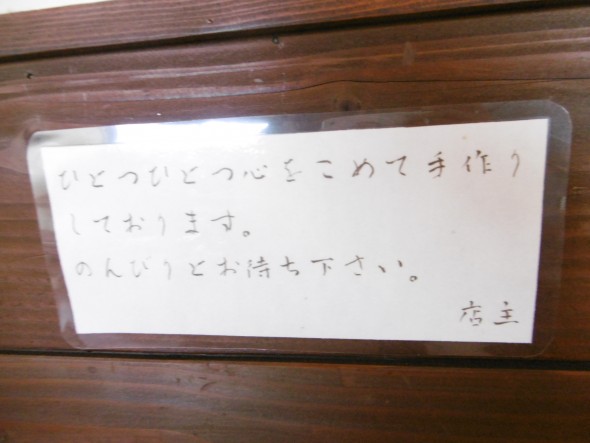 ひとつひとつ心をこめて手作り
しております。
のんびりとお待ち下さい。
店主